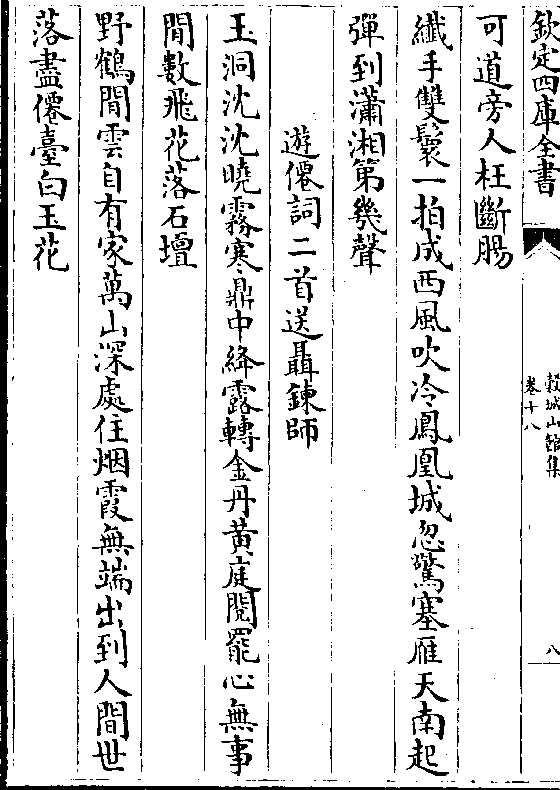 欽定四庫全書
穀城山館集
卷十八
八
可道旁人枉斷腸
纖手雙鬟一拍成西風吹冷鳳凰城忽驚塞雁天南起
彈到瀟湘第幾聲
遊僊詞二首送聶鍊師
玉洞沈沈曉霧寒鼎中絳露轉金丹黃庭閱罷心無事
閒數飛花落石壇
野鶴閒雲自有家萬山深處住烟霞無端出到人間世
落盡僊臺白玉花